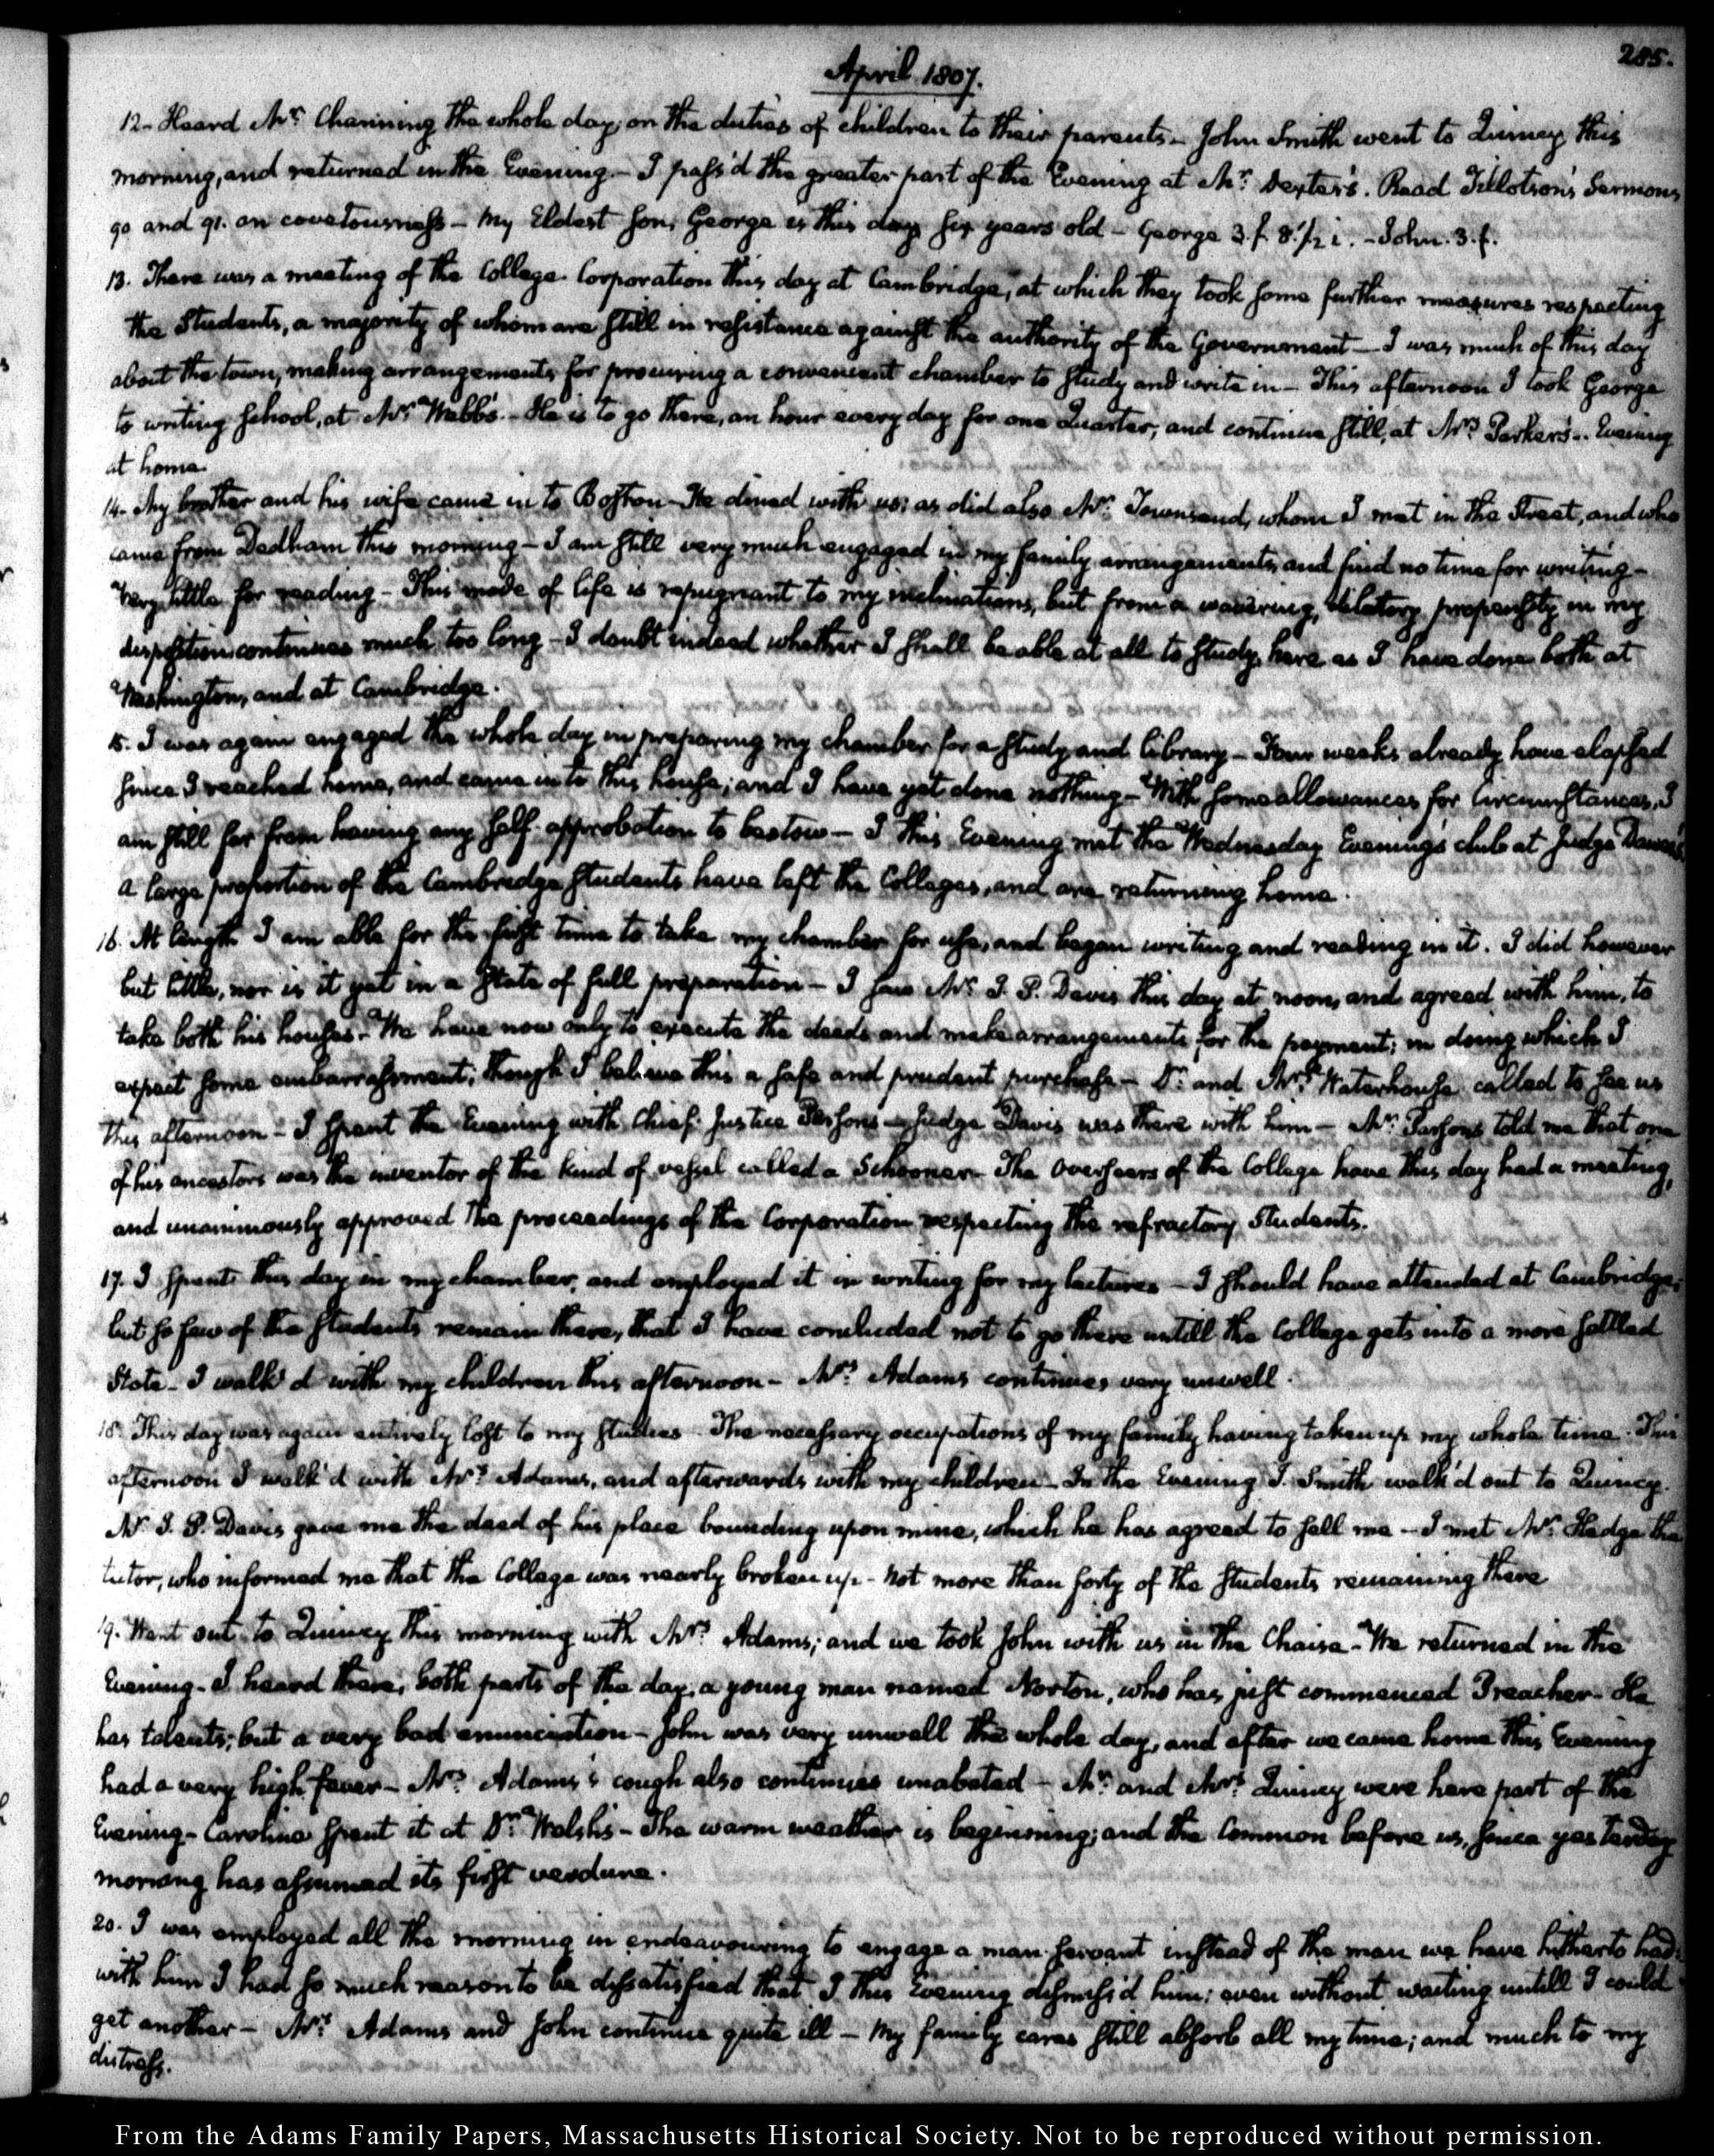 285.
April 1807.
12- Heard Mr. Channing the whole day, on the duties of children to their parents- John Smith went to Quincy this
morning, and returned in the Evening.- I pass'd the greater part of the Evening at Mr. Dexter's. Read Tillotson's Sermons
90 and 91. on covetousness- My Eldest son, George is this day six years old- George 3. f. 8. 1/2 i. - John. 3. f.
13. There was a meeting of the College Corporation this day at Cambridge, at which they took some further measures respecting
the Students, a majority of whom are still in resistance against the authority of the Government- I was much of this day
about the town, making arrangements for procuring a convenient chamber to study and write in- This afternoon I took George
to writing school, at Mr. Webb's.- He is to go there, an hour every day for one Quarter, and continue still, at Mrs. Parker's.. Evening
at home.
14. My brother and his wife came in to Boston- He dined with us; as did also Mr. Townsend, whom I met in the Street, and who
came from Dedham this morning- I am still very much engaged in my family arrangements, and find no time for writing-
Very little for reading- This mode of life is repugnant to my inclinations, but from a wavering, dilatory propensity in my
disposition continues much too long- I doubt indeed whether I shall be able at all to study, here as I have done both at
Washington, and at Cambridge.
15. I was again engaged the whole day in preparing my chamber for a study and library- Four weeks already have elapsed
since I reached home, and came in to this house; and I have yet done nothing- With some allowances for Circumstances, I
am still far from having any self-approbation to bestow- I this Evening met the Wednesday Evening's club at Judge Dawes's
A large proportion of the Cambridge students have left the Colleges, and are returning home.
16. At length I am able for the first time to take my chamber for use, and began writing and reading in it. I did however
but little, nor is it yet in a State of full preparation- I saw Mr. I. P. Davis this day at noon, and agreed with him, to
take both his houses- We have now only to execute the deeds and make arrangements for the payment; in doing which I
expect some embarrassment; though I believe this a safe and prudent purchase- Dr. and Mrs. Waterhouse called to see us
this afternoon- I spent the Evening with Chief Justice Parsons- Judge Davis was there with him- Mr. Parsons told me that one
of his ancestors was the inventor of the kind of vessel called a Schooner- The Overseers of the College have this day had a meeting,
and unanimously approved the proceedings of the Corporation respecting the refractory Students.
17. I spent this day in my chamber, and employed it in writing for my lectures- I should have attended at Cambridge;
but so few of the students remain there, that I have concluded not to go there untill the College gets into a more settled
State- I walk'd with my children this afternoon- Mrs. Adams continues very unwell.
18. This day was again entirely lost to my studies- The necessary occupations of my family having taken up my whole time. This
afternoon I walk'd with Mrs. Adams, and afterwards with my children- In the Evening J. Smith walk'd out to Quincy.
Mr. I. P. Davis gave me the deed of his place bounding upon mine, which he has agreed to sell me- I met Mr. Hedge the
tutor, who informed me that the College was nearly broken up- Not more than forty of the students remaining there
19. Went out to Quincy this morning with Mrs. Adams; and we took John with us in the Chaise- We returned in the
Evening- I heard there, both parts of the day, a young man named Norton, who has just commenced Preacher- He
has talents; but a very bad enunciation- John was very unwell the whole day, and after we came home this Evening
had a very high fever- Mrs. Adams's cough also continues unabated- Mr. and Mrs. Quincy were here part of the
Evening- Caroline spent it at Dr. Welsh's- The warm weather is beginning; and the Common before us, since yesterday
morning has assumed its first verdure.
20. I was employed all the morning in endeavouring to engage a man servant instead of the man we have hitherto had:
with him I had so much reason to be dissatisfied that I this Evening dismiss'd him; even without waiting untill I could
get another- Mrs. Adams and John continue quite ill- My family cares still absorb all my time; and much to my
distress.
From the Adams Family Papers, Massachusetts Historical Society. Not to be reproduced without permission.